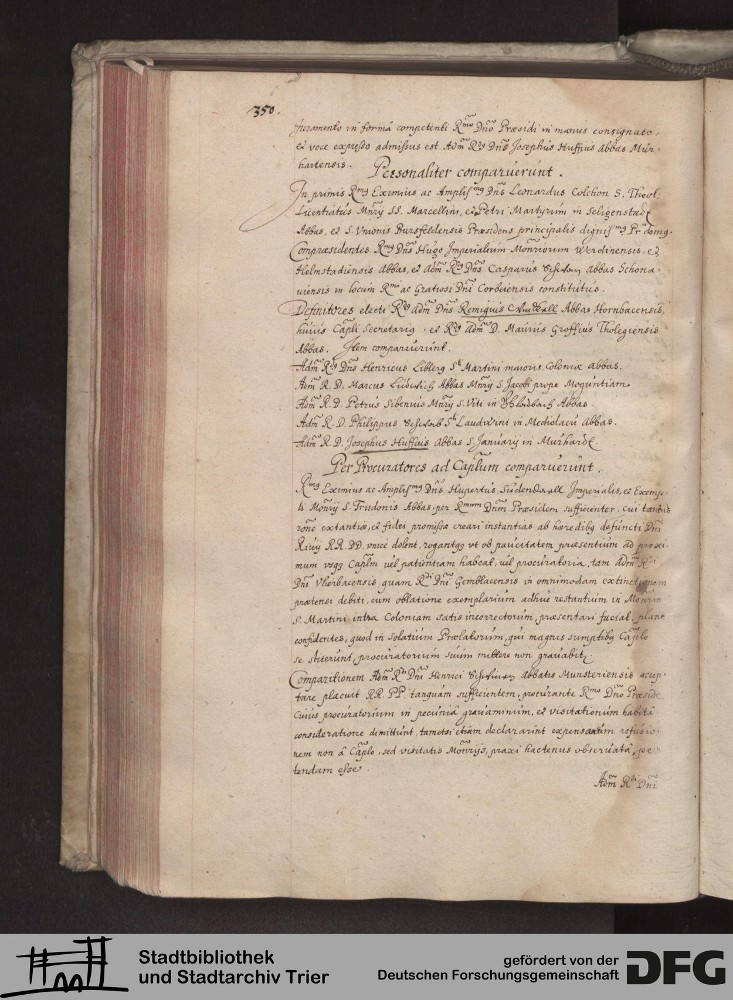 350.
Juramento in formâ competenti R.mo Dno Præsidi in manus consignato,
et voce expresso admissus est Adm R.dg Dns Josephus Huffius abbas Mur-
hartensis.
Personaliter comparuerunt.
In primis R.mg Eximius ac Amplis.mg Dns Leonardus Colchon S. Theol:
Licentiatus Mnrÿ SS. Marcellini, et Petri Martyrum in Seligenstad
Abbas, et S. Unionis Bursfeldensis Præsidens principalis dignis.mg
Compræsidentes R.mg Dns Hugo Imperialium Monriorum Werdinensis, et
Helmstadiensis Abbas, et Adm R.dg Dns Casparus abbas Schona-
uiensis in locum R.mi ac Gratiosi Dni Corbeiensis constitutus.
Definitores electi R.dg adm Dns Remigius Abbas Hornbacensis,
huius Capli Secretarig. et R.dg Adm D. Maurus Groffius Tholegiensis
Abbas. Item comparuerunt.
Adm R.dg Dns Henricus Libberg S.ti Martini maioris Coloniæ abbas.
Adm R. D. Marcus Abbas Mnrÿ S. Jacobi prope Moguntiam.
Adm R. D. Petrus Sibenius Mnrÿ S. Viti in Gladbach Abbas.
Adm R. D. Philippus S.ti Laudwini in Mediolacu Abbas.
Adm R. D. Josephus Huffius Abbas S. Januarÿ in Murhardt
Per Procuratores ad Caplum comparuerunt.
R.mg Eximius ac Amplis.mg Dns Hupertus Sudendwall Imperialis, et Exemp-
ti Monrÿ S. Trudonis Abbas, per R.mum Dnum Præsidem sufficienter, cui tantis
rone extantiæ, et fidei promissæ creari instantias ab hæredibg defuncti Dni
RR. DD. unice dolent, rogantqg ut ob paucitatem præsentium ad proxi-
mum usqg Caplm uel patientiam habeat, uel procuratoria, tam Adm R.di
Dni Vlierbacensis, quam R.di Dni Gemblacensis in omnimodam extinctionem
prætensi debiti, cum oblatione exemplarium adhuc restantium in Monrio
S. Martini intra Coloniam satis incorrectorum, præsentari faciat, plane
confidentes, quod in solatium Prælatorum, qui magnis sumptibg Caplo
se stiterunt, procuratorium suum mittere non grauabitr.
Comparitionem Adm R.di Dni Henrici abbatis Munsteriensis acep-
tare placuit RR. PP. tanquam sufficientem, procurante R.mo Dno Præside.
Cuius procuratorium in pecuniâ grauaminum, et visitationum habitâ
consideratione dimittunt, tametsi etiam declararint expensarum refusio-
nem non à Caplo, sed visitatis Monrÿs, praxi hactenus obseruatâ, pe-
tendam esse.
Adm R.di Dni
Stadtbibliothek
und Stadtarchiv Trier
gefördert von der
Deutschen Forschungsgemeinschaft
DFG